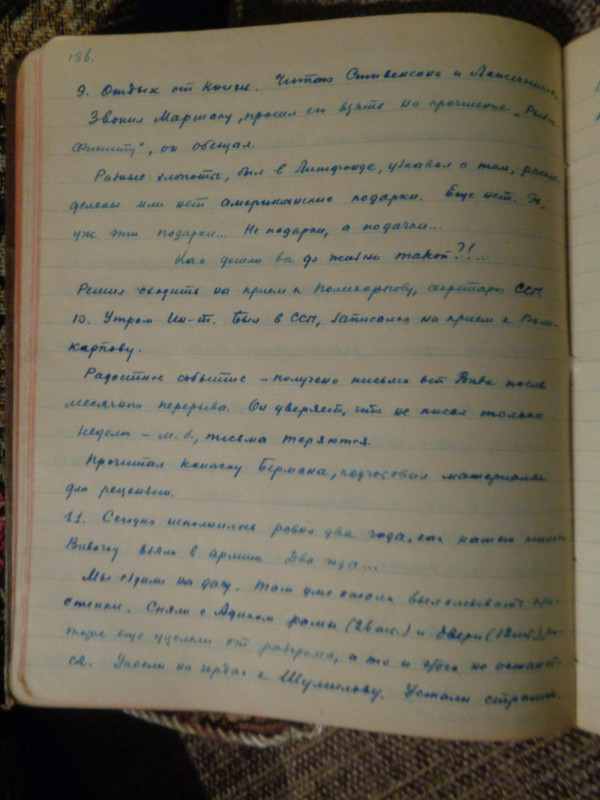 136.
9. Отдых от книги. Читаю Стивенсона и
Звонил Маршаку, просил его взять на прочтение
он обещал.
Разные хлопоты, был в Литфонде, узнавал о том, распре-
делены или нет американские подарки. Еще нет. Ж,
уж эти подарки... Не подарки, а подачки...
Как дошли вы до жизни такой?!..
Решил сходить на прием к Поликарпову, секретарю ССП
10. Утром Ин-т. Был в ССП, записался на прием к Поли-
карпову.
Радостное событие – получено письмо от Вивы после
месячного перерыва. Он уверяет, что не писал только
неделю – м. б., письма теряются.
Прочитал книжку Бермана, подготовил материалы
для рецензии.
11. Сегодня исполнилось ровно два года, как нашего
Вивочку взяли в армию Два года...
Мы ездили на дачу. Там уже начали выламывать про-
стенки. Сняли с Адиком рамы (28шт.) и двери (12шт.),
еще уцелели от разгрома, а то и этого не останет-
ся. Унесли на чердак к Шумилову. Устали страшно.